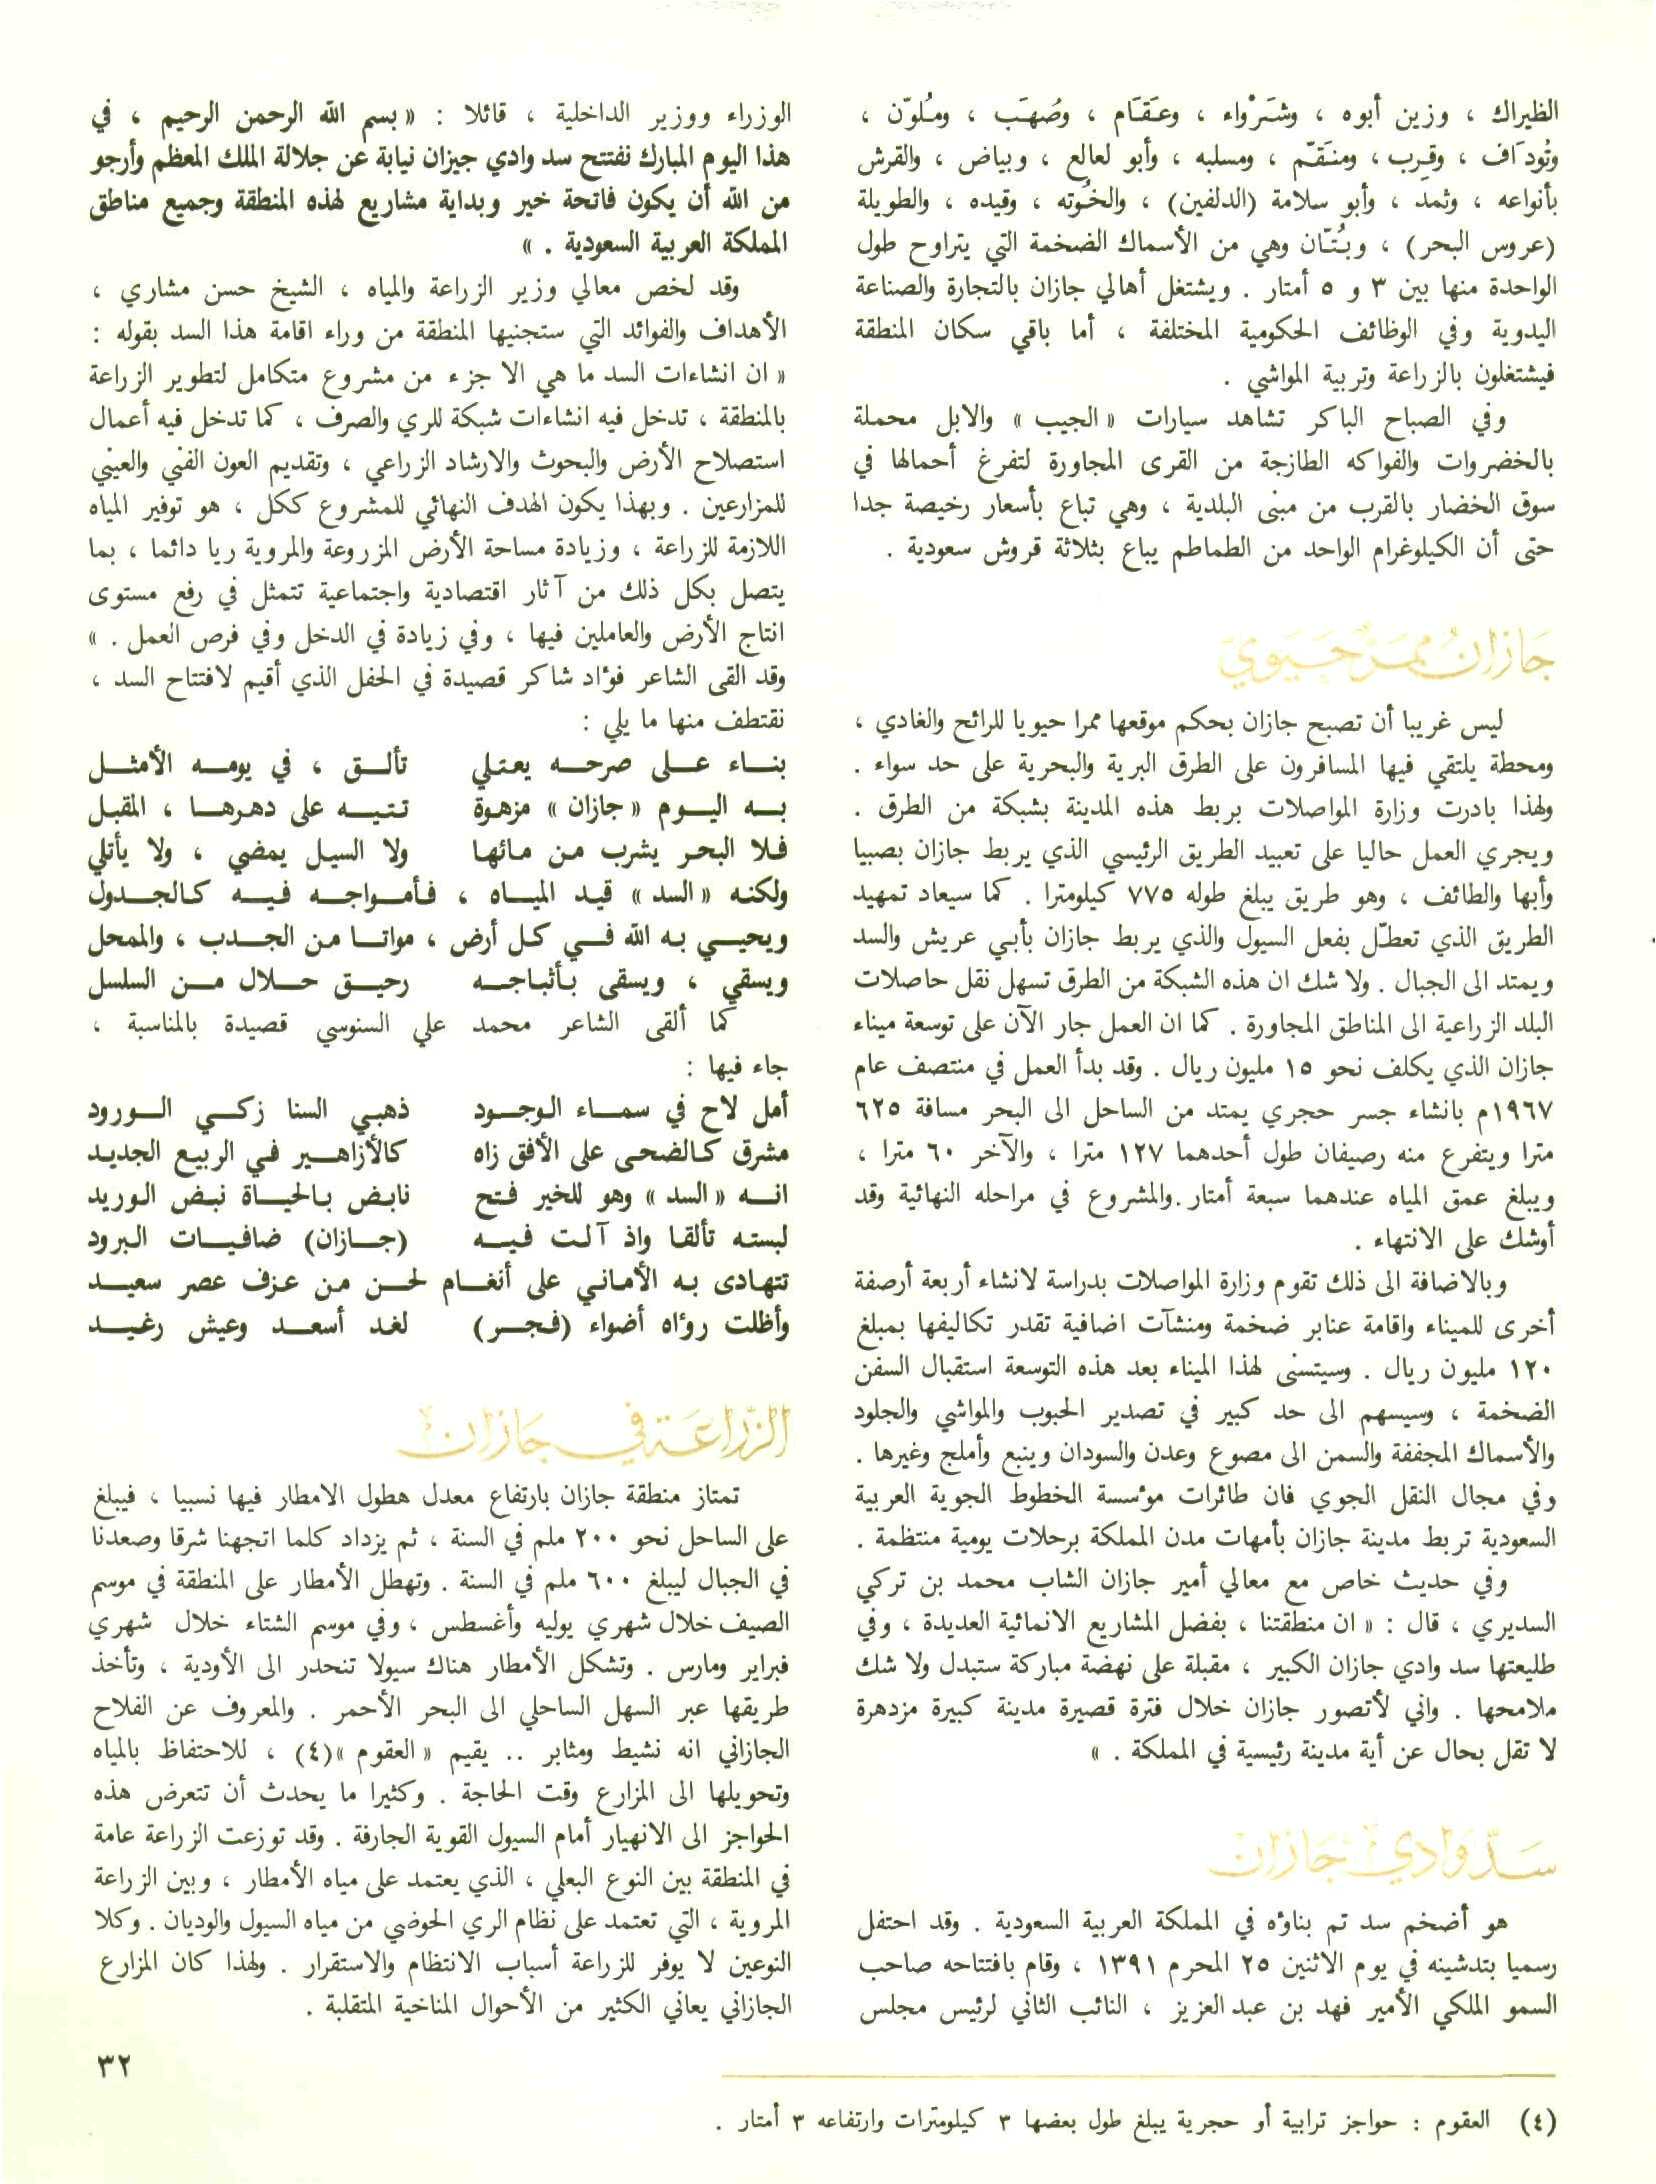 الظيراك ، وزين أبوه ، وشَرْواء ، وعَقَام ، وصُهَب ، ومُلوّن ،
وتُودَاف ، وقِرب ، ومنَقّم ، ومسلبه ، وأبو لعالع ، وبياض ، والقرش
بأنواعه ، وثمد ، وأبو سلامة (الدلفين) ، والخُوته ، وقيده ، والطويلة
(عروس البحر) ، وبُتّان وهي من الأسماك الضخمة التي يتراوح طول
الواحدة منها بين ٣ و ٥ أمتار . ويشتغل أهالي جازان بالتجارة والصناعة
اليدوية وفي الوظائف الحكومية المختلفة ، أما باقي سكان المنطقة
فيشتغلون بالزراعة وتربية المواشي .
وفي الصباح الباكر تشاهد سيارات « الجيب » والابل محملة
بالخضروات والفواكه الطازجة من القرى المجاورة لتفرغ أحمالها في
سوق الخضار بالقرب من مبنى البلدية ، وهي تباع بأسعار رخيصة جدا
حتى أن الكيلوغرام الواحد من الطماطم يباع بثلاثة قروش سعودية .
جَازانُ ممَرّ حَيَويّ
ليس غريبا أن تصبح جازان بحكم موقعها ممرا حيويا للرائح والغادي ،
ومحطة يلتقي فيها المسافرون على الطرق البرية والبحرية على حد سواء .
ولهذا بادرت وزارة المواصلات بربط هذه المدينة بشبكة من الطرق .
ويجري العمل حاليا على تعبيد الطريق الرئيسي الذي يربط جازان بصبيا
وأبها والطائف ، وهو طريق يبلغ طوله ٧٧٥ كيلومترا . كما سيعاد تمهيد
الطريق الذي تعطّل بفعل السيول والذي يربط جازان بأبي عريش والسد
ويمتد الى الجبال . ولا شك ان هذه الشبكة من الطرق تسهل نقل حاصلات
البلد الزراعية الى المناطق المجاورة . كما ان العمل جار الآن على توسعة ميناء
جازان الذي يكلف نحو ١٥ مليون ريال . وقد بدأ العمل في منتصف عام
١٩٦٧م بانشاء جسر حجري يمتد من الساحل الى البحر مسافة ٦٢٥
مترا ويتفرع منه رصيفان طول أحدهما ١٢٧ مترا ، والآخر ٦٠ مترا ،
ويبلغ عمق المياه عندهما سبعة أمتار .والمشروع في مراحله النهائية وقد
أوشك على الانتهاء .
وبالاضافة الى ذلك تقوم وزارة المواصلات بدراسة لانشاء أربعة أرصفة
أخرى للميناء واقامة عنابر ضخمة ومنشآت اضافية تقدر تكاليفها بمبلغ
١٢٠ مليون ريال . وسيتسنى لهذا الميناء بعد هذه التوسعة استقبال السفن
الضخمة ، وسيسهم الى حد كبير في تصدير الحبوب والمواشي والجلود
والأسماك المجففة والسمن الى مصوع وعدن والسودان وينبع وأملج وغيرها .
وفي مجال النقل الجوي فان طائرات مؤسسة الخطوط الجوية العربية
السعودية تربط مدينة جازان بأمهات مدن المملكة برحلات يومية منتظمة .
وفي حديث خاص مع معالي أمير جازان الشاب محمد بن تركي
السديري ، قال : « ان منطقتنا ، بفضل المشاريع الانمائية العديدة ، وفي
طليعتها سد وادي جازان الكبير ، مقبلة على نهضة مباركة ستبدل ولا شك
ملامحها . واني لأتصور جازان خلال فترة قصيرة مدينة كبيرة مزدهرة
لا تقل بحال عن أية مدينة رئيسية في المملكة . »
سَدّ وَادي جَازان
هو أضخم سد تم بناؤه في المملكة العربية السعودية . وقد احتفل
رسميا بتدشينه في يوم الاثنين ٢٥ المحرم ١٣٩١ ، وقام بافتتاحه صاحب
السمو الملكي الأمير فهد بن عبد العزيز ، النائب الثاني لرئيس مجلس
الوزراء ووزير الداخلية ، قائلا : « بسم الله الرحمن الرحيم ، في
هذا اليوم المبارك نفتتح سد وادي جيزان نيابة عن جلالة الملك المعظم وأرجو
من الله أن يكون فاتحة خير وبداية مشاريع لهذه المنطقة وجميع مناطق
المملكة العربية السعودية . »
وقد لخص معالي وزير الزراعة والمياه ، الشيخ حسن مشاري ،
الأهداف والفوائد التي ستجنيها المنطقة من وراء اقامة هذا السد بقوله :
« ان انشاءات السد ما هي الا جزء من مشروع متكامل لتطوير الزراعة
بالمنطقة ، تدخل فيه انشاءات شبكة للري والصرف ، كما تدخل فيه أعمال
استصلاح الأرض والبحوث والارشاد الزراعي ، وتقديم العون الفني والعيني
للمزارعين . وبهذا يكون الهدف النهائي للمشروع ككل ، هو توفير المياه
اللازمة للزراعة ، وزيادة مساحة الأرض المزروعة والمروية ريا دائما ، بما
يتصل بكل ذلك من آثار اقتصادية واجتماعية تتمثل في رفع مستوى
انتاج الأرض والعاملين فيها ، وفي زيادة في الدخل وفي فرص العمل . »
وقد القى الشاعر فؤاد شاكر قصيدة في الحفل الذي أقيم لافتتاح السد ،
نقتطف منها ما يلي :
بناء على صرحه يعتلي تألق ، في يومه الأمثل
به اليوم « جازان » مزهوة تتيه على دهرها ، المقبل
فلا البحر يشرب من مائها ولا السيل يمضي ، ولا يأتلي
ولكنه « السد » قيد المياه ، فأمواجه فيه كالجدول
ويحيي به الله في كل أرض ، مواتا من الجدب ، والممحل
ويسقي ، ويسقى بأثباجه رحيق حلال من السلسل
كما ألقى الشاعر محمد علي السنوسي قصيدة بالمناسبة ،
جاء فيها :
أمل لاح في سماء الوجود ذهبي السنا زكي الورود
مشرق كالضحى على الأفق زاه كالأزاهير في الربيع الجديد
انه « السد » وهو للخير فتح نابض بالحياة نبض الوريد
لبسته تألقا واذ آلت فيه (جازان) ضافيات البرود
تتهادى به الأماني على أنغام لحن من عزف عصر سعيد
وأظلت رؤاه أضواء (فجر) لغد أسعد وعيش رغيد
الزّراعَة في جَازان
تمتاز منطقة جازان بارتفاع معدل هطول الامطار فيها نسبيا ، فيبلغ
على الساحل نحو ٢٠٠ ملم في السنة ، ثم يزداد كلما اتجهنا شرقا وصعدنا
في الجبال ليبلغ ٦٠٠ ملم في السنة . وتهطل الأمطار على المنطقة في موسم
الصيف خلال شهري يوليه وأغسطس ، وفي موسم الشتاء خلال شهري
فبراير ومارس . وتشكل الأمطار هناك سيولا تنحدر الى الأودية ، وتأخذ
طريقها عبر السهل الساحلي الى البحر الأحمر . والمعروف عن الفلاح
الجازاني انه نشيط ومثابر .. يقيم « العقوم »(٤) ، للاحتفاظ بالمياه
وتحويلها الى المزارع وقت الحاجة . وكثيرا ما يحدث أن تتعرض هذه
الحواجز الى الانهيار أمام السيول القوية الجارفة . وقد توزعت الزراعة عامة
في المنطقة بين النوع البعلي ، الذي يعتمد على مياه الأمطار ، وبين الزراعة
المروية ، التي تعتمد على نظام الري الحوضي من مياه السيول والوديان . وكلا
النوعين لا يوفر للزراعة أسباب الانتظام والاستقرار . ولهذا كان المزارع
الجازاني يعاني الكثير من الأحوال المناخية المتقلبة .
٣٢
(٤) العقوم : حواجز ترابية أو حجرية يبلغ طول بعضها ٣ كيلومترات وارتفاعه ٣ أمتار .